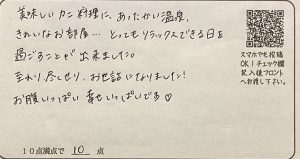 美味しいカニ料理に、あったかい温泉、
きれいなお部屋… とってもリラックスできる日を
過ごすことが出来ました。
至れり、尽くせり、お世話になりました!
お腹いっぱい 幸せいっぱいです♡
10点満点で 10 点
スマホでも投稿
OK！チェック欄
記入後フロント
へお渡し下さい。